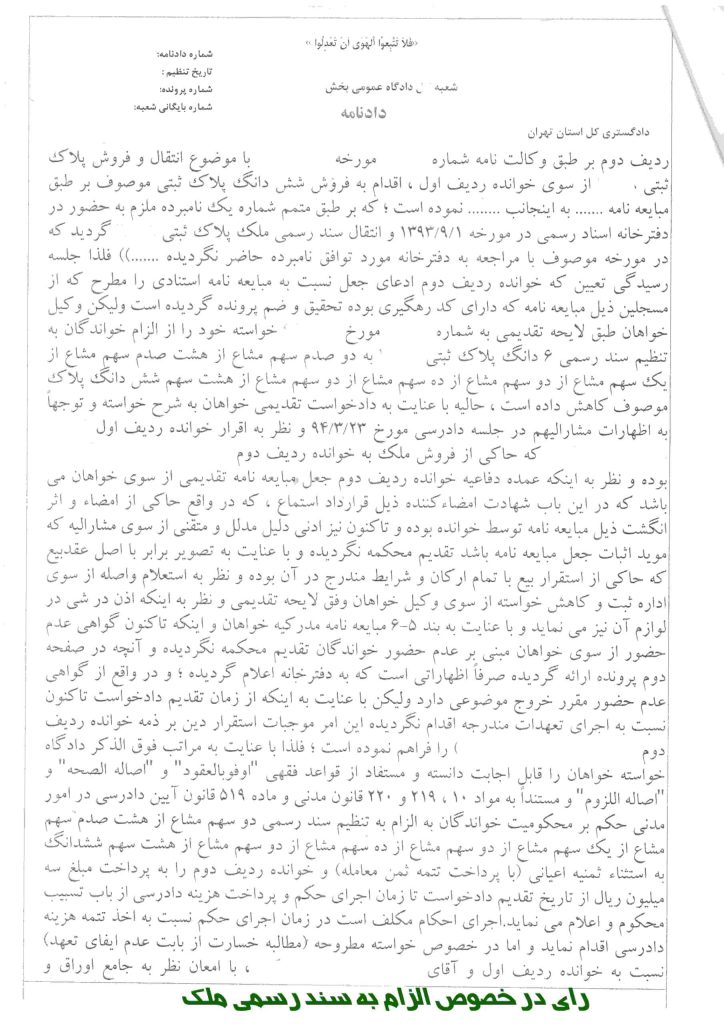 «فلا تتبعوا الهوی ان تعدلوا »
شماره دادنامه:
تاریخ تنظیم :
شماره پرونده:
شماره بایگانی شعبه:
شعبه دادگاه عمومی بخش
دادنامه
دادگستری کل استان تهران
ردیف دوم بر طبق وکالت نامه شماره مورخه با موضوع انتقال و فروش پلاک
ثبتی . از سوی خوانده ردیف اول ، اقدام به فروش شش دانگ پلاک ثبتی موصوف بر طبق
مبایعه نامه ....... به اینجانب ........ نموده است ؛ که بر طبق متمم شماره یک نامبرده ملزم به حضور در
دفترخانه اسناد رسمی در مورخه ۱۳۹۳/۹/۱ و انتقال سند رسمی ملک پلاک ثبتی گردید که
در مورخه موصوف با مراجعه به دفترخانه مورد توافق نامبرده حاضر نگردیده .......)) فلذا جلسه
رسیدگی تعیین که خوانده ردیف دوم ادعای جعل نسبت به مبایعه نامه استنادی را مطرح که از
مسجلین ذیل مبایعه نامه که دارای کد رهگیری بوده تحقیق و ضم پرونده گردیده است ولیکن وکیل
خواهان طبق لایحه تقدیمی به شماره مورخ خواسته خود را از الزام خواندگان به
تنظیم سند رسمی ۶ دانگ پلاک ثبتی به دو صدم سهم مشاع از هشت صدم سهم مشاع از
یک سهم مشاع از دو سهم مشاع از ده سهم مشاع از دو سهم مشاع از هشت سهم شش دانگ پلاک
موصوف کاهش داده است ، حالیه با عنایت به دادخواست تقدیمی خواهان به شرح خواسته و توجهاً
به اظهارات مشارالیهم در جلسه دادرسی مورخ ۹۴/۳/۲۳ و نظر به اقرار خوانده ردیف اول
که حاکی از فروش ملک به خوانده ردیف دوم
بوده و نظر به اینکه عمده دفاعیه خوانده ردیف دوم جعل مبایعه نامه تقدیمی از سوی خواهان می
باشد که در این باب شهادت امضاءکننده ذیل قرارداد استماع ، که در واقع حاکی از امضاء و اثر
انگشت ذیل مبایعه نامه توسط خوانده بوده و تاکنون نیز ادنی دلیل مدلل و متقنی از سوی مشارالیه که
موید اثبات جعل مبایعه نامه باشد تقدیم محکمه نگردیده و با عنایت به تصویر برابر با اصل عقدبیع
که حاکی از استقرار بیع با تمام ارکان و شرایط مندرج در آن بوده و نظر به استعلام واصله از سوی
اداره ثبت و کاهش خواسته از سوی وکیل خواهان وفق لایحه تقدیمی و نظر به اینکه اذن در شی در
لوازم آن نیز می نماید و با عنایت به بند ۵-۶ مبایعه نامه مدرکیه خواهان و اینکه تاکنون گواهی عدم
حضور از سوی خواهان مبنی بر عدم حضور خواندگان تقدیم محکمه نگردیده و آنچه در صفحه
دوم پرونده ارائه گردیده صرفاً اظهاراتی است که به دفترخانه اعلام گردیده ؛ و در واقع از گواهی
عدم حضور مقرر خروج موضوعی دارد ولیکن با عنایت به اینکه از زمان تقدیم دادخواست تاکنون
نسبت به اجرای تعهدات مندرجه اقدام نگردیده این امر موجبات استقرار دین بر ذمه خوانده ردیف
دوم ) را فراهم نموده است ؛ فلذا با عنایت به مراتب فوق الذکر دادگاه
خواسته خواهان را قابل اجابت دانسته و مستفاد از قواعد فقهی "اوفوبالعقود" و "اصاله الصحه" و
"اصاله اللزوم" و مستنداً به مواد ۱۰ ، ۲۱۹ و ۲۲۰ قانون مدنی و ماده ۵۱۹ قانون آیین دادرسی در امور
مدنی حکم بر محکومیت خواندگان به الزام به تنظیم سند رسمی دو سهم مشاع از هشت صدم سهم
مشاع از یک سهم مشاع از دو سهم مشاع از ده سهم مشاع از دو سهم مشاع از هشت سهم ششدانگ
به استثناء ثمنیه اعیانی (با پرداخت تتمه ثمن معامله) و خوانده ردیف دوم را به پرداخت مبلغ سه
میلیون ریال از تاریخ تقدیم دادخواست تا زمان اجرای حکم و پرداخت هزینه دادرسی از باب تسبیب
محکوم و اعلام می نماید.اجرای احکام مکلف است در زمان اجرای حکم نسبت به اخذ تتمه هزینه
دادرسی اقدام نماید و اما در خصوص خواسته مطروحه (مطالبه خسارت از بابت عدم ایفای تعهد)
نسبت به خوانده ردیف اول و آقای ، با امعان نظر به جامع اوراق و
رای در خصوص الزام به سند رسمی ملک